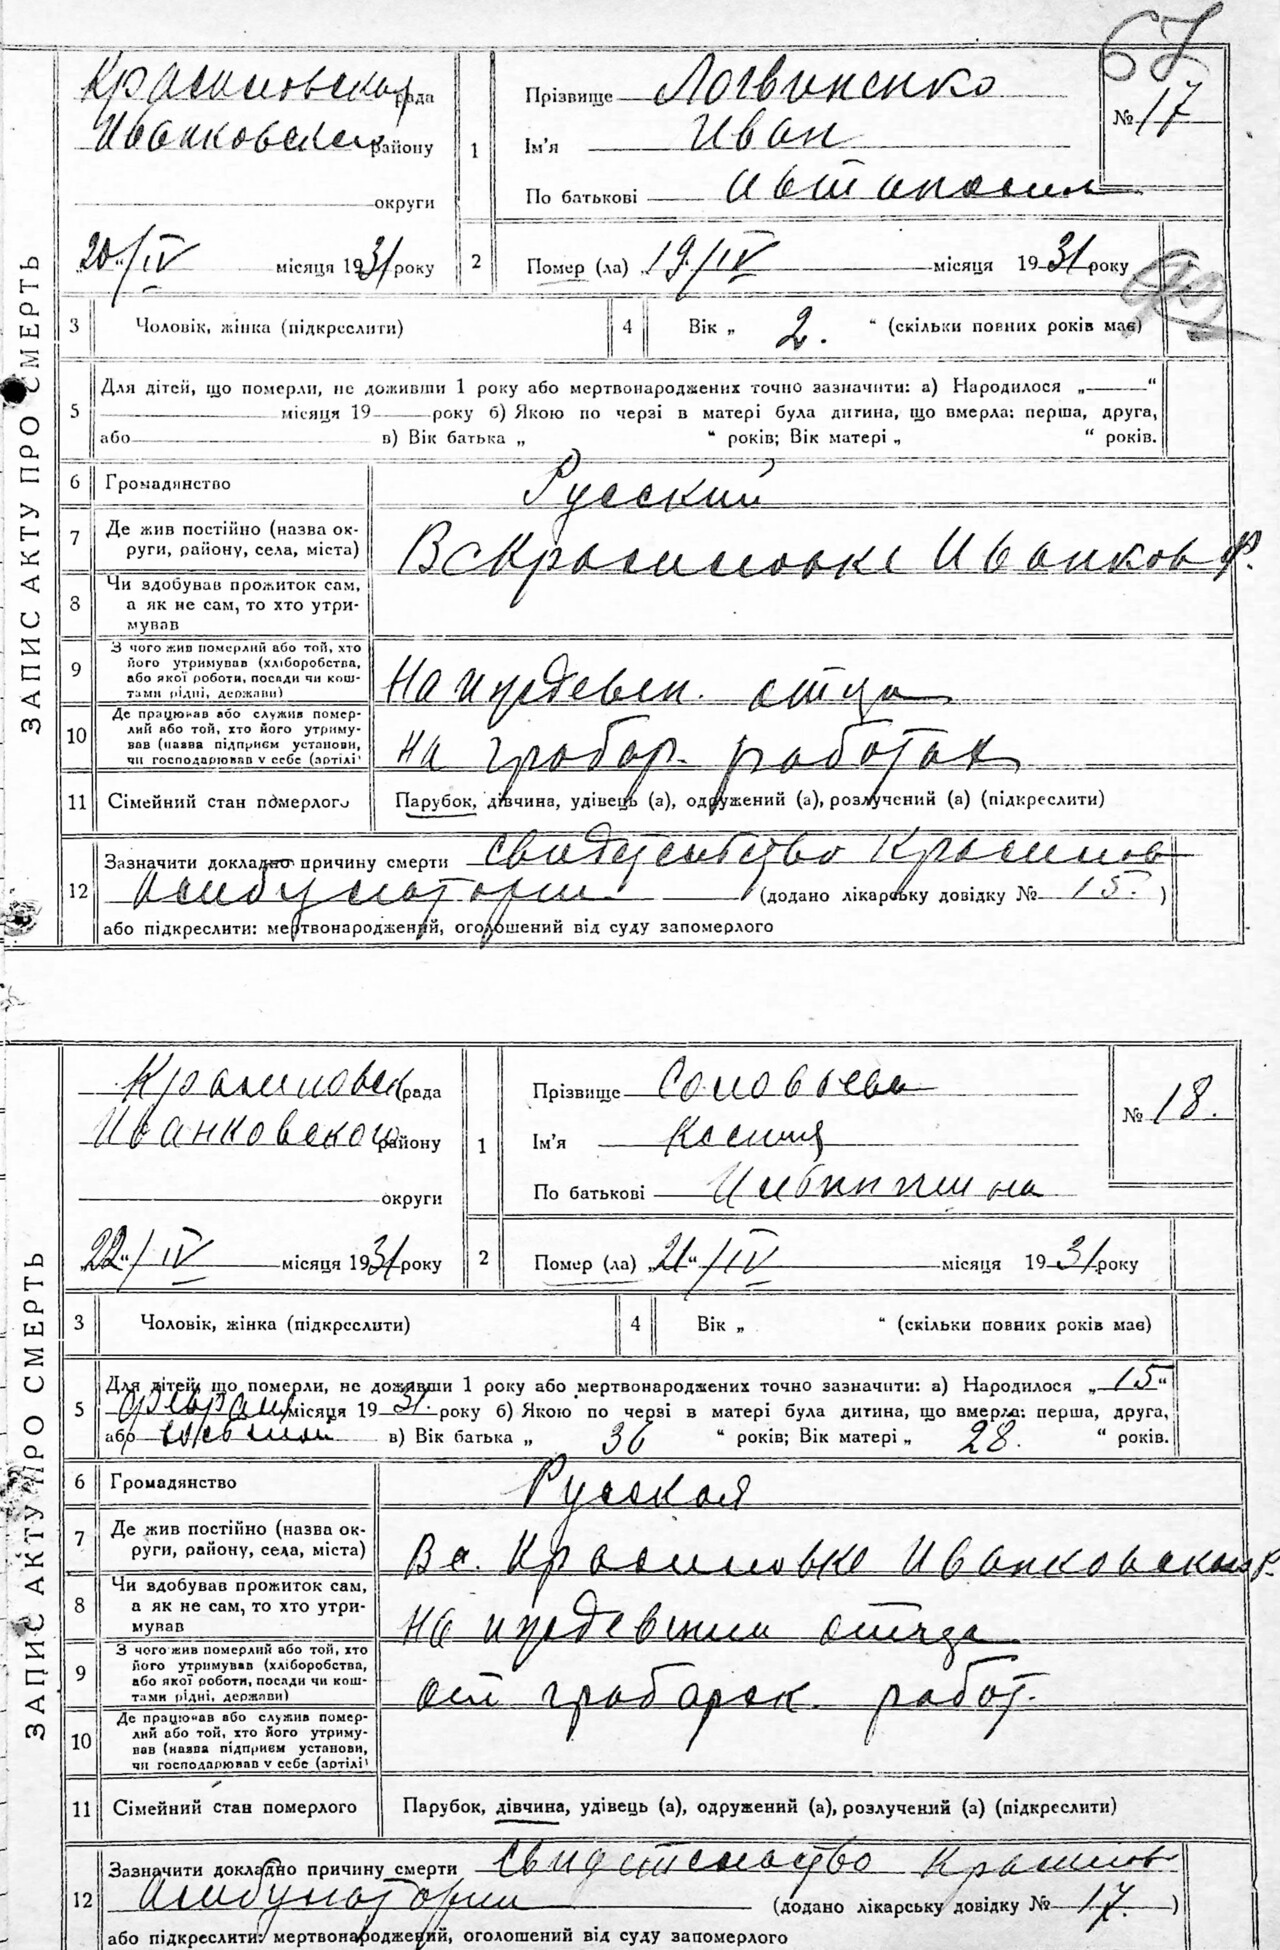 67
ЗАПИС АКТУ ПРО СМЕРТЬ
Красиловская рада
Иванковского району
округи
„20“/IV місяця 1931 року
1
Прізвище Логвиненко
Ім'я Иван
По батькові
№ 17
2
Помер (ла) 19/IV місяця 1931 року
3 Чоловік, жінка (підкреслити)
4 Вік „ 2. “ (скільки повних років має)
5 Для дітей, що померли, не доживши 1 року або мертвонароджених точно зазначити: а) Народилося „ “
місяця 19 року б) Якою по черзі в матері була дитина, що вмерла: перша, друга,
або в) Вік батька „ “ років; Вік матері „ “ років.
6 Громадянство Русский
7 Де жив постійно (назва ок-
руги, району, села, міста) В с Красиловке Иванков р.
8 Чи здобував прожиток сам,
а як не сам, то хто утри-
мував
9 З чого жив померлий або той, хто
його утримував (хліборобства,
або якої роботи, посади чи кош-
тами рідні, держави) На иждевен. отца
10 Де працював або служив помер-
лий або той, хто його утриму-
вав (назва підприєм установи,
чи господарював у себе (артілі) на грабар. работах
11 Сімейний стан померлого Парубок, дівчина, удівець (а), одружений (а), розлучений (а) (підкреслити)
12 Зазначити докладно причину смерти свидетельство Красилов
Амбулатории (додано лікарську довідку № 15. )
або підкреслити: мертвонароджений, оголошений від суду запомерлого
ЗАПИС АКТУ ПРО СМЕРТЬ
Красиловск рада
Иванковского району
округи
„22“/IV місяця 1931 року
1
Прізвище Соловьева
Ім'я Ксения
По батькові
№ 18.
2
Помер (ла) „21“/IV місяця 1931 року
3 Чоловік, жінка (підкреслити)
4 Вік „ “ (скільки повних років має)
5 Для дітей, що померли, не доживши 1 року або мертвонароджених точно зазначити: а) Народилося „ 15 “
февраля місяця 1931. року б) Якою по черзі в матері була дитина, що вмерла: перша, друга,
або в) Вік батька „ 36 “ років; Вік матері „ 28. “ років.
6 Громадянство Русская
7 Де жив постійно (назва ок-
руги, району, села, міста) В с. Красиловке Иванковского р.
8 Чи здобував прожиток сам,
а як не сам, то хто утри-
мував на иждевении отца
9 З чого жив померлий або той, хто
його утримував (хліборобства,
або якої роботи, посади чи кош-
тами рідні, держави) от грабарск. работ.
10 Де працював або служив помер-
лий або той, хто його утриму-
вав (назва підприєм установи,
чи господарював у себе (артілі)
11 Сімейний стан померлого Парубок, дівчина, удівець (а), одружений (а), розлучений (а) (підкреслити)
12 Зазначити докладно причину смерти Свидетельство Красилов
Амбулатории (додано лікарську довідку № 17. )
або підкреслити: мертвонароджений, оголошений від суду запомерлого